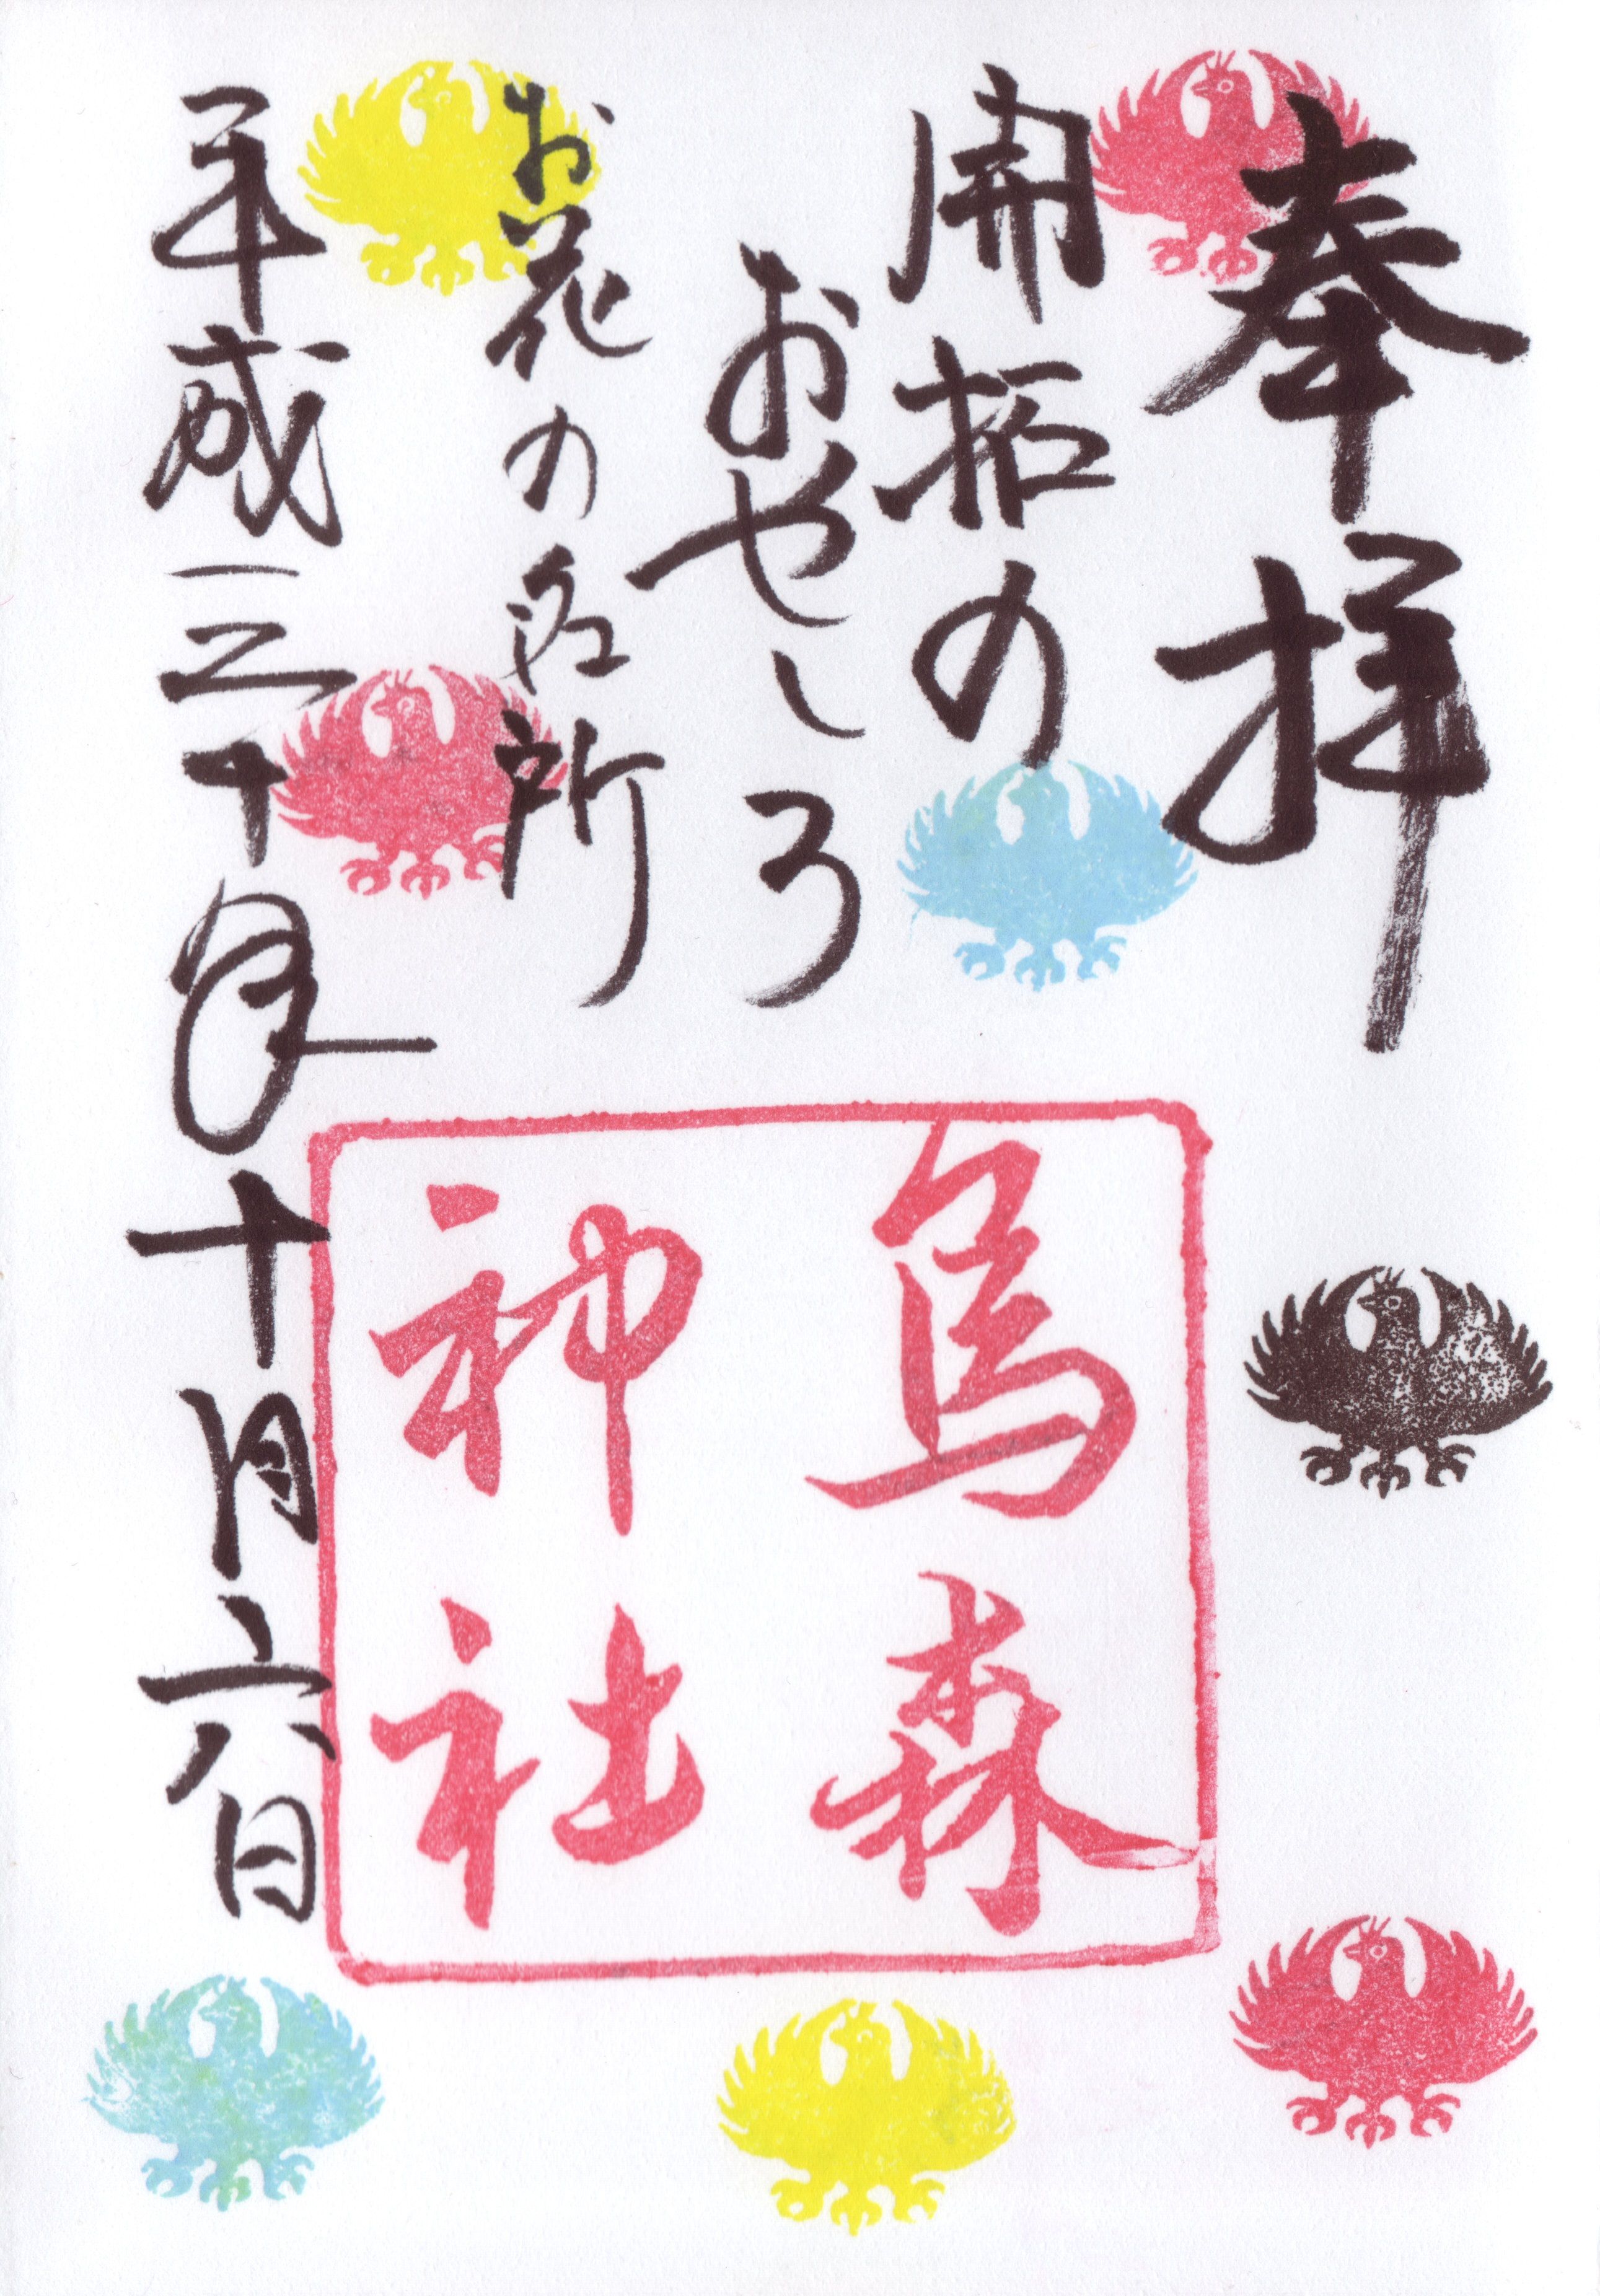 奉拝
開拓の
おやしろ
お花の名所
平成三十年十月六日
烏森
神社